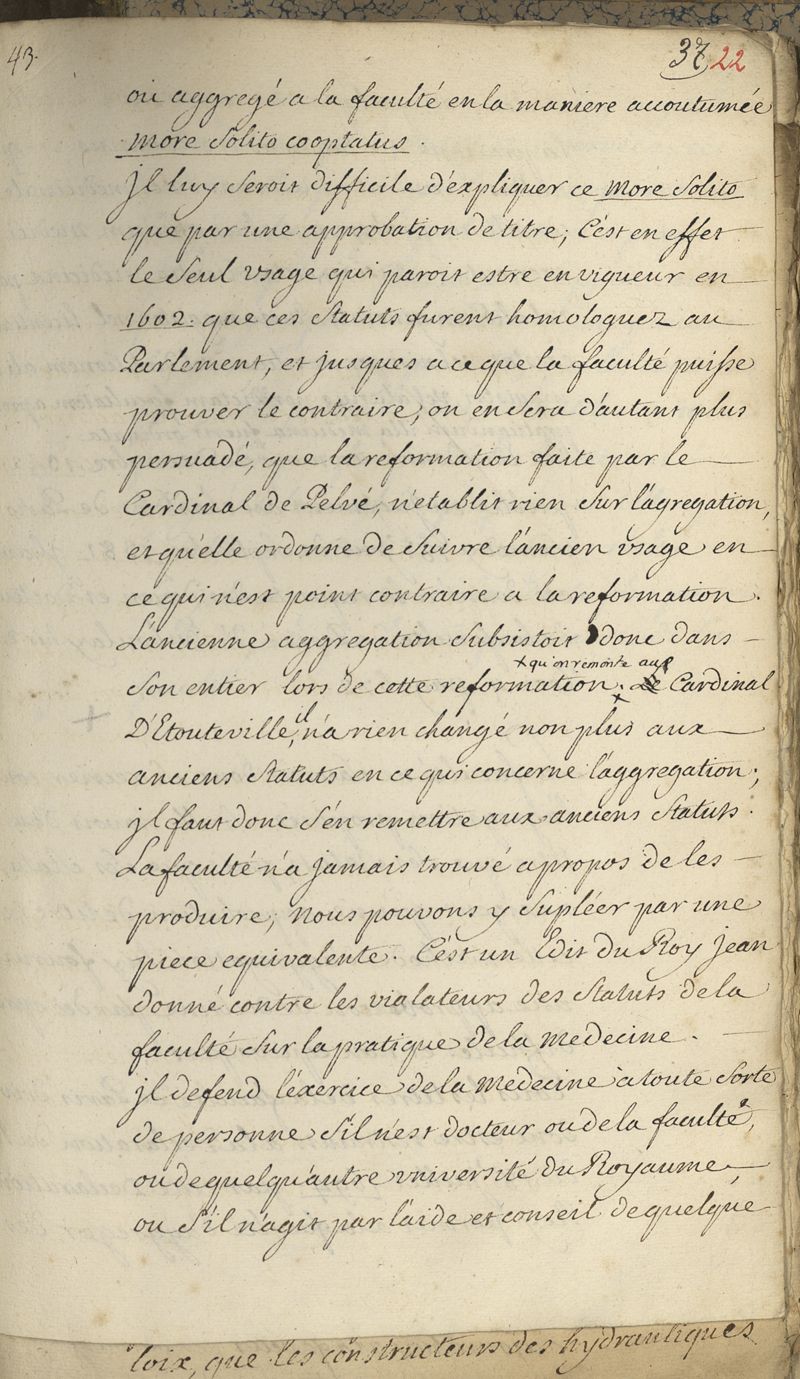 43.
37 22
ou aggregé a la faculté en la maniere accoutumée
more Solito cooptatus.
jl luy Seroit difficile d'expliquer ce more Solito
que par une approbation de titre; C'est en effet
le Seul usage qui paroit estre en vigueur en
1602. que ces Statuts furent homologuez au
Parlement, et jusques a ce que la faculté puisse
prouver le contraire, on en Sera d'autant plus
persuadé, que la reformation faite par le
Cardinal de Pelvé, n'etablit rien Sur l'agregation,
et qu'elle ordonne de Suivre l'ancien usage en
ce qui n'est point contraire a la reformation.
L'ancienne aggregation Subsistoit donc dans
+ qu'on remonte au
Son entier lors de cette reformation. + Cardinal
D'Etouteville, il n'a rien changé non plus aux
anciens Statuts en ce qui concerne l'aggregation;
jl faut donc s'en remettre aux anciens Statuts.
La faculté n'a jamais trouvé apropos de les
produire, nous pouvons y Supléer par une
piece equivalente. C'est un Edit du Roy jean
donné contre les violateurs des Statuts de la
faculté Sur la pratique de la Medecine.
jl defend l'exercice de la Medecine a toute Sorte
de personne S'il n'est docteur ou de la faculté,
ou de quelqu'autre université du Royaume,
ou S'il n'agit par l'aide et conseil de quelque
loix, que les constructeurs des hydrauliques